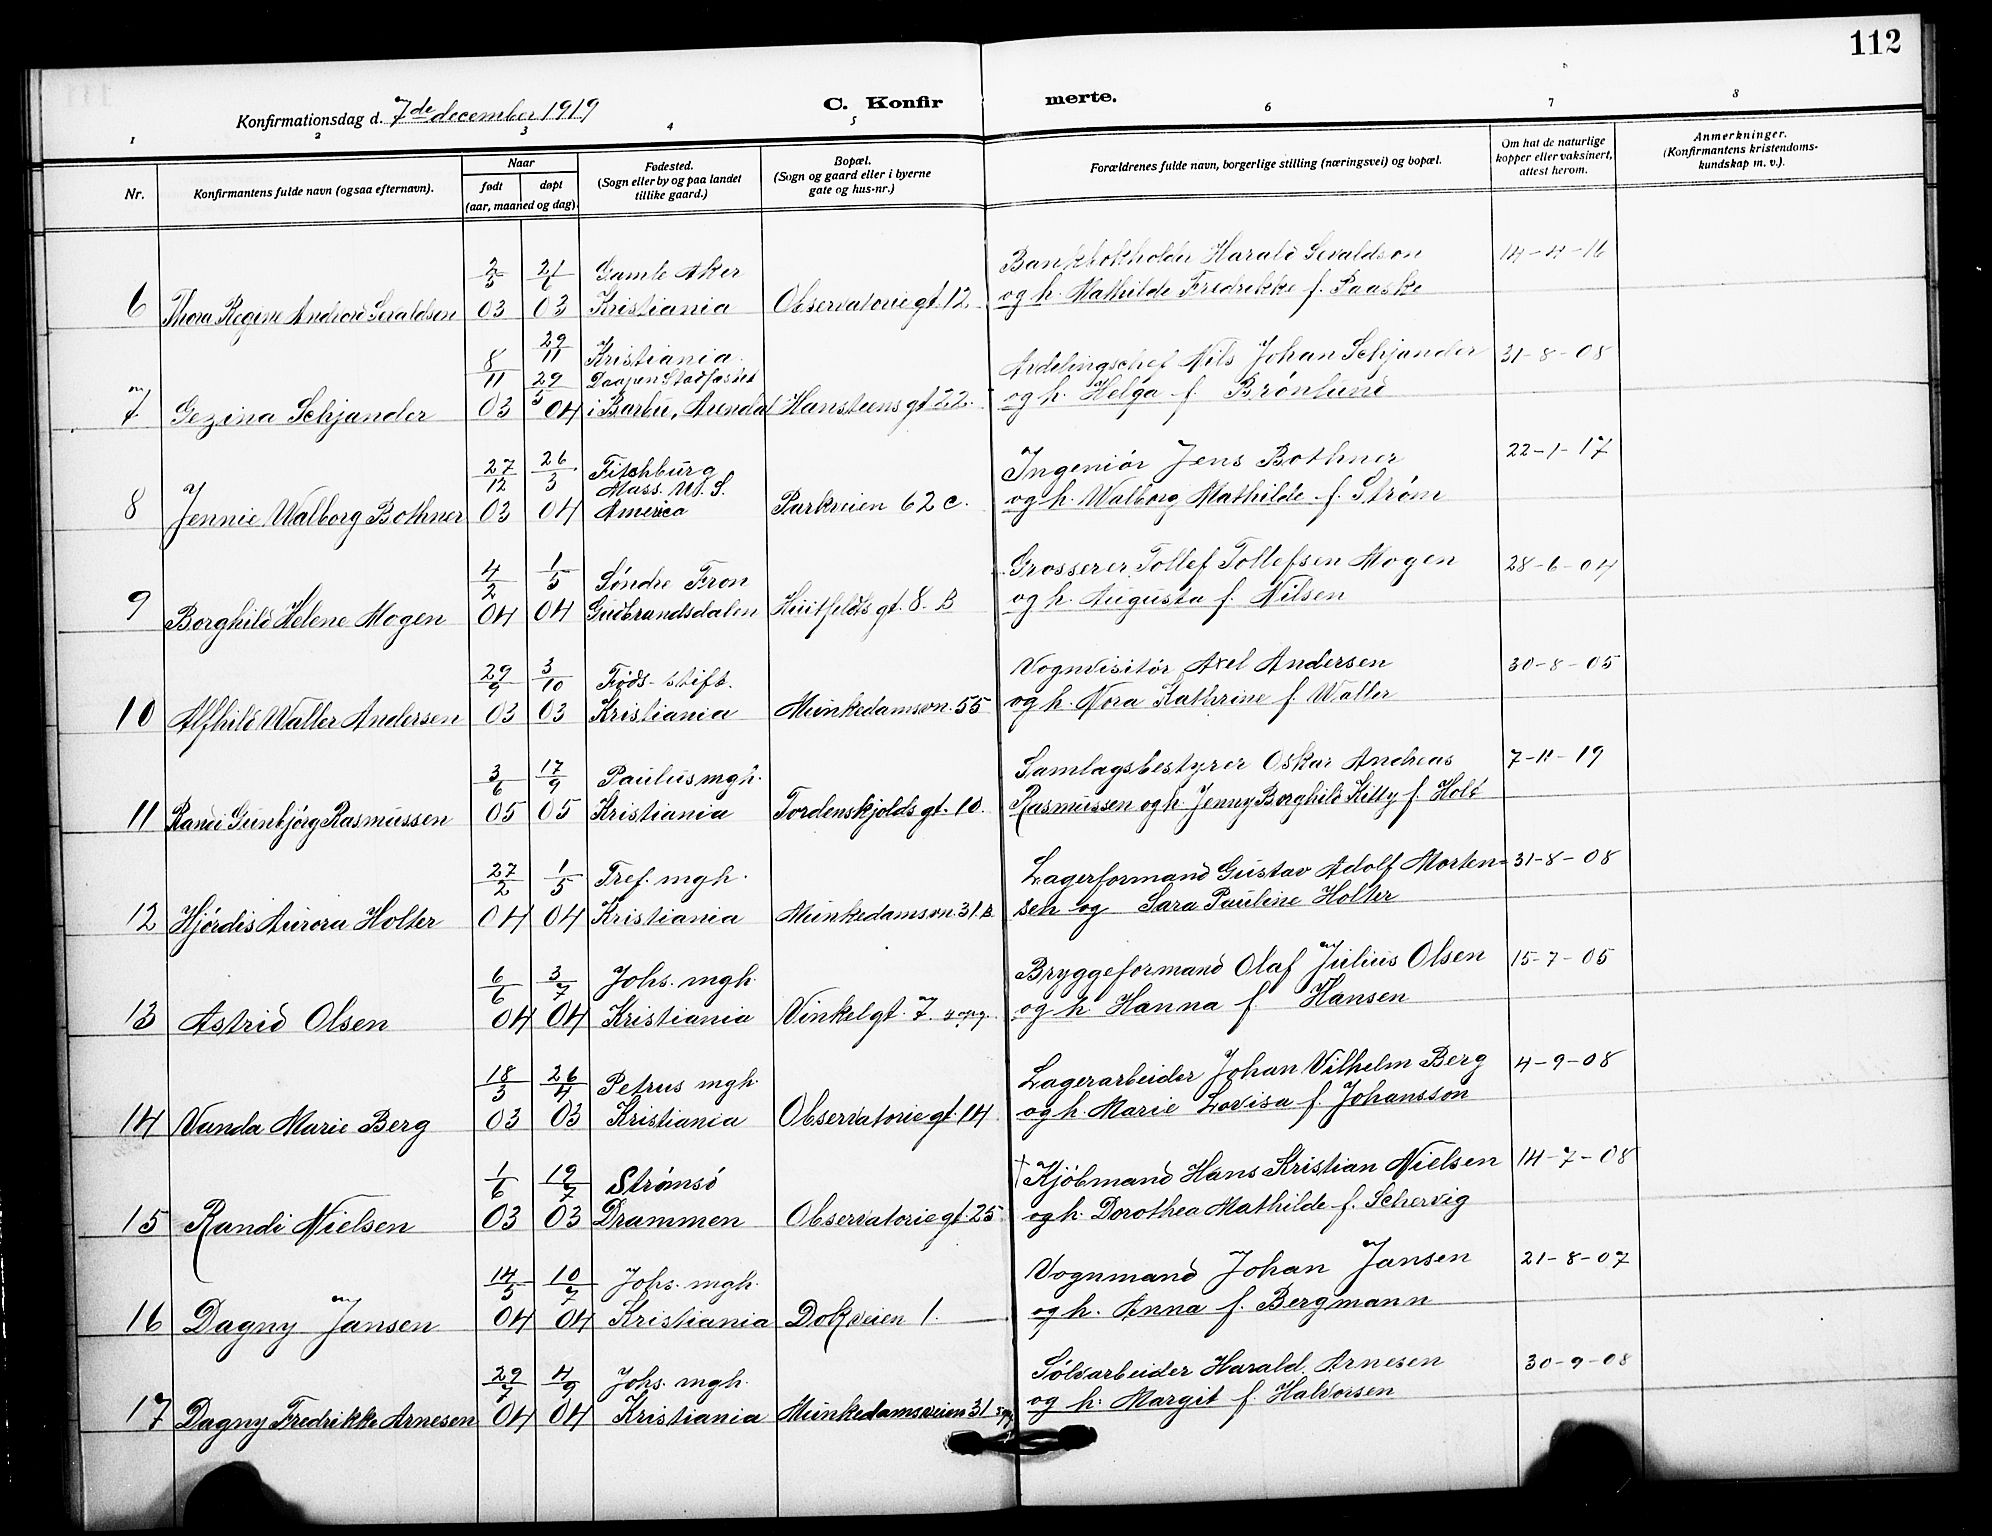 112
Konfirmationsdag d. 7de december 1919
C. Konfirmerte.
1 2 3 4 5 6 7 8
Nr.
Konfirmantens fulde navn (ogsaa efternavn).
Naar
født døpt
(aar, maaned og dag).
Fødested.
(Sogn eller by og paa landet
tillike gaard.)
Bopæl.
(Sogn og gaard eller i byerne
gate og hus-nr.)
Forældrenes fulde navn, borgerlige stilling (næringsvei) og bopæl.
Om hat de naturlige
kopper eller vaksinert,
attest herom.
Anmerkninger.
(Konfirmantens kristendoms-
kundskap m. v.).
2/5 21/6 Gamle Aker Bankbokholder Harald Sevaldson 14-4-16
6 Thora Regine Andrea Sevaldsen 03 03 Kristiania Observatorie gt. 12 og h. Mathilde Fredrikke f. Paaske
29/11 Kristiania
8/11 29/5 Daapen Stadfæstet Avdelingschef Nils Johan Schjander 31-8-08
7 Gezina Schjander 03 04 i Barbu, Arendal Hansteens gt 22. og h. Helga f. Brønlund
27/12 26/3 Fitchburg Ingeniör Jens Bothner 22-1-17
Mass. U. S.
8 Jennie Walborg Bothner 03 04 America Parkveien 62 c. og h. Walborg Mathilde f. Strøm
4/2 1/5 Søndre Fron Grosserer Tollef Tollefsen Mogen 28-6-04
9 Borghild Helene Mogen 04 04 Gudbrandsdalen Huitfeldts gt. 8. B og h. Augusta f. Nilsen
29/9 3/10 Føds. stift. Vognvisitör Axel Andersen 30-8-05
10 Alfhild Walter Andersen 03 03 Kristiania Munkedamsvn. 55 og h. Nora Kathrine f. Walter
3/6 17/9 Paulus mgh. Samlagsbestyrer Oskar Andreas 7-11-19
11 Randi Gunbjörg Rasmussen 05 05 Kristiania Tordenskjolds gt. 10. Rasmussen og h. Jenny Borghild Kitty f. Holt
27/2 1/5 Tref. mgh. Lagerformand Gustav Adolf Morten- 31-8-08
12 Hjördis Aurora Holter 04 04 Kristiania Munkedamsvn. 31 B. sen og Sara Pauline Holter
6/6 3/7 Johs. mgh. Bryggeformand Olaf Julius Olsen 15-7-05
13 Astrid Olsen 04 04 Kristiania Vinkelgt. 7. og h. Hanna f. Hansen
18/3 26/4 Petrus mgh. Lagerarbeider Johan Vilhelm Berg 4-9-08
14 Vanda Marie Berg 03 03 Kristiania Observatorie gt. 14 og h. Marie Lovisa f. Johansson
1/6 19/7 Strømsö † Kjöbmand Hans Kristian Nielsen 14-7-08
15 Randi Nielsen 03 03 Drammen Observatorie gt. 25 og h. Dorothea Mathilde f. Schervig
14/5 10/7 Johs. mgh. Vognmand Johan Jansen 21-8-07
16 Dagny Jansen 04 04 Kristiania Dokveien 1. og h. Anna f. Bergmann
29/7 4/9 Johs. mgh. Sølvarbeider Harald Arnesen 30-9-08
17 Dagny Fredrikke Arnesen 04 04 Kristiania Munkedamsveien 31 og h. Margit f. Halvorsen